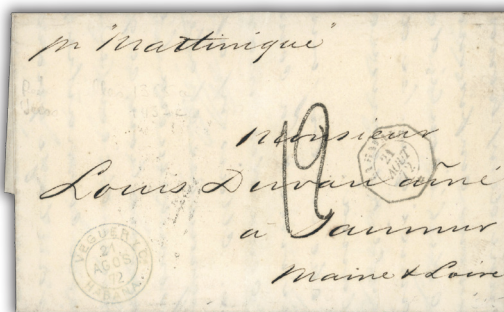 pr "Martinique"
Monsieur
12
Louis Duvau ainé
à Saumur
Maine & Loire
21
AOUT
VEGUER Y Ca
21
AGOS
72
HABANA